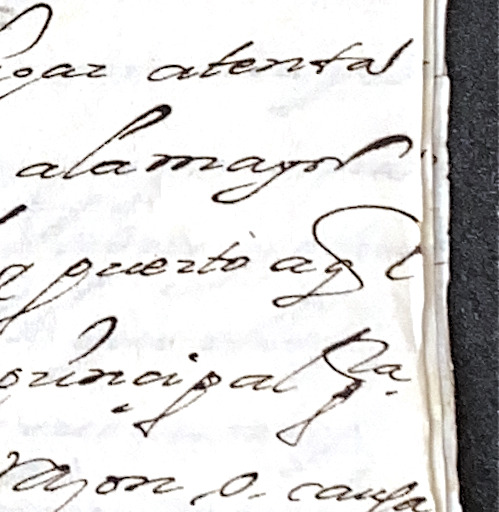 gar atenta
ala mayor
puerto aq.l
principal pa.
Razon, o. causa